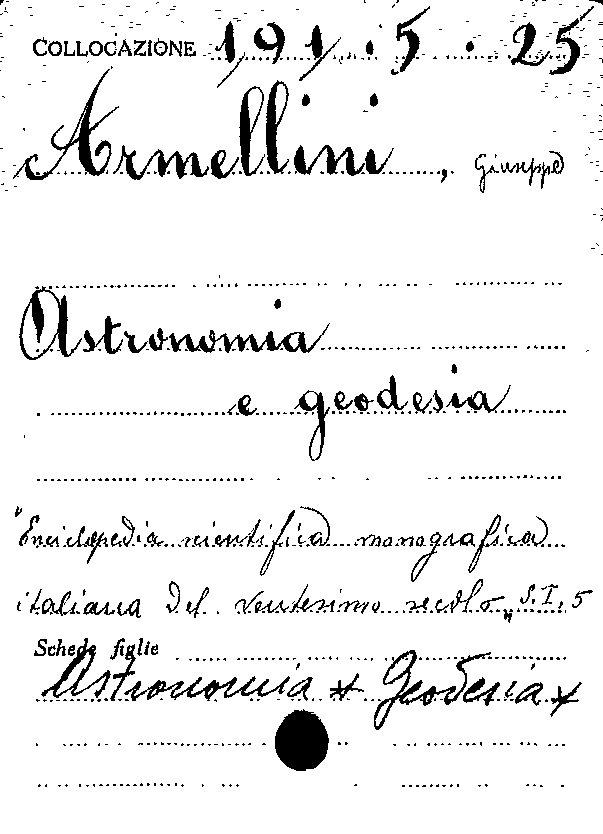 COLLOCAZIONE 191.5.25
Armellini, Giuseppe
Astronomia
e geodesia
"Enciclopedia scientifica monografica
italiana del ventesimo secolo„ S.I, 5
Schede figlie
Astronomia * Geodesia *